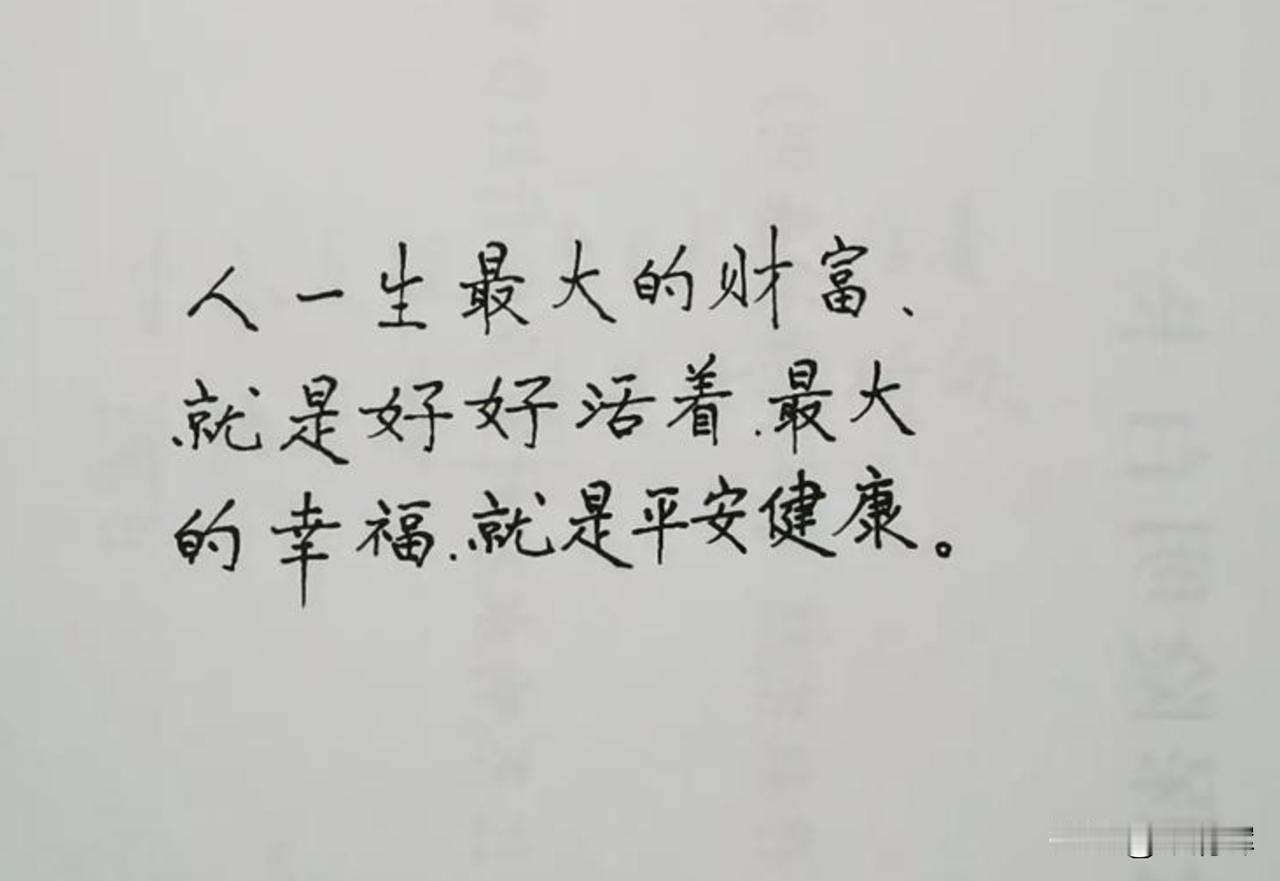 人一生最大的财富、
就是好好活着、最大
的幸福、就是平安健康。